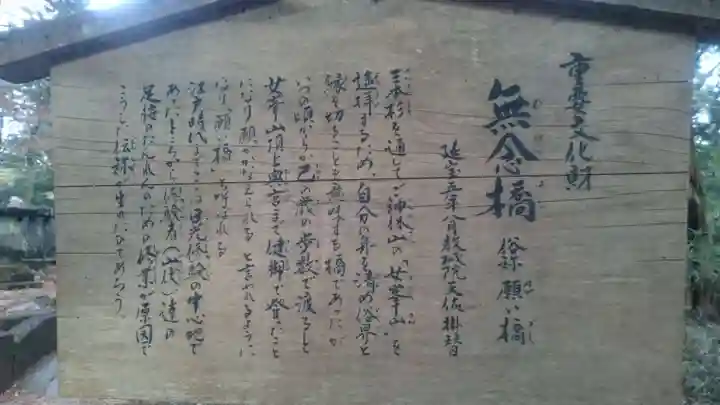 重要文化財
無念橋 俗称 願い橋
延宝五年八月教城院天佑掛替
三本杉を通してご神体山の「女峯山」を
遥拝するため、自分の身を清め俗界と
縁を切ることを意味する橋であったが
いつの頃からか己の歳の歩数で渡ると
女峯山頂上奥宮まで健脚で登ったこと
になり願いがかなえられると言われるように
なり「願い橋」と呼ばれる
江戸時代まではここは日光修験の中心地で
あったところから修験者(山伏)達の
足腰のたんれんのための修業が原因で
こうした伝承が生れたのであろう。